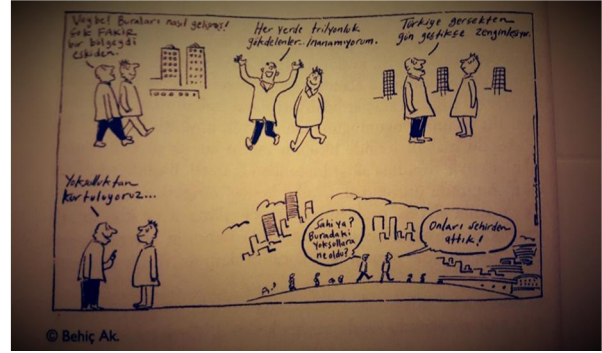 Vay be! Buraları nasıl gelişmiş!
Çok FAKİR
bir bölgeydi
eskiden.
Her yerde trilyonluk
gökdelenler. İnanamıyorum.
Türkiye gerçekten
gün geçtikçe zenginleşiyor.
Yoksulluktan
kurtuluyoruz...
Sahi ya?
Buradaki
yoksullara
ne oldu?
Onları şehirden
attık!
© Behiç Ak.